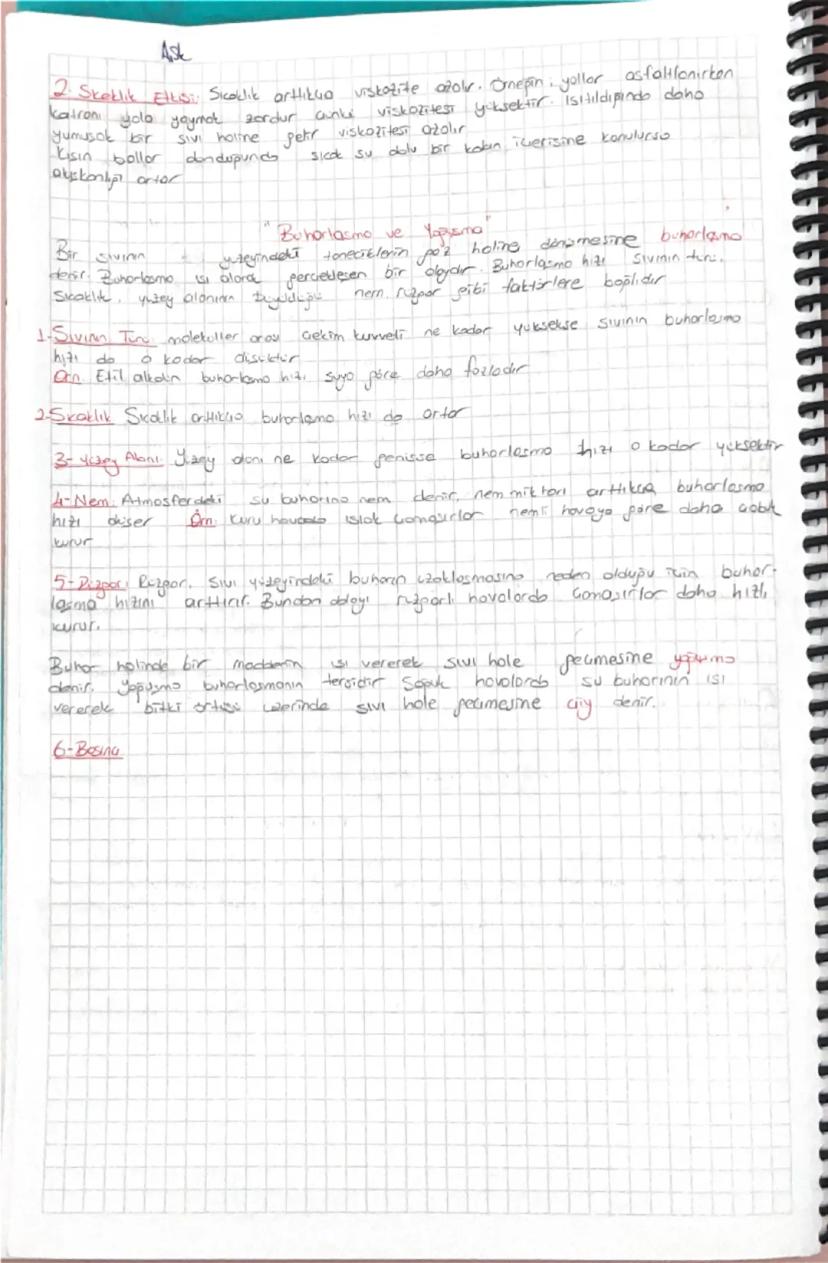 Ask
2. Sıcaklık Etkisi: Sıcaklık arttıkça viskozite azalır. Örneğin; yollar asfaltlanırken
katranı yola yaymak zordur çünkü viskozitesi yüksektir. Isıtıldığında daha
yumuşak bir sıvı haline gelir viskozitesi azalır
Kışın ballar donduğunda sıcak su dolu bir kabın içerisine konulursa
akışkanlığı artar
"Buharlaşma ve Yoğuşma"
Bir sıvının yüzeyindeki taneciklerin gaz haline dönüşmesine buharlaşma
denir. Buharlaşma ısı alarak gerçekleşen bir olaydır. Buharlaşma hızı sıvının türü,
sıcaklık, yüzey alanının büyüklüğü nem, rüzgar gibi faktörlere bağlıdır
1-Sıvının Türü moleküller arası çekim kuvveti ne kadar yüksekse sıvının buharlaşma
hızı da o kadar düşüktür
Örn. Etil alkolün buharlaşma hızı suya göre daha fazladır
2-Sıcaklık Sıcaklık arttıkça buharlaşma hızı da artar
3- Yüzey Alanı: Yüzey alanı ne kadar genişse buharlaşma hızı o kadar yüksektir
4-Nem: Atmosferdeki su buharına nem denir, nem miktarı arttıkça buharlaşma
hızı düşer Örn: kuru havada ıslak çamaşırlar nemli havaya göre daha çabuk
kurur
5-Rüzgar: Rüzgar, sıvı yüzeyindeki buharın uzaklaşmasına neden olduğu için buhar-
laşma hızını arttırır. Bundan dolayı rüzgarlı havalarda çamaşırlar daha hızlı
kurur.
Buhar halinde bir maddenin ısı vererek sıvı hale geçmesine yoğuşma
denir. Yoğuşma buharlaşmanın tersidir Soğuk havalarda su buharının ısı
vererek bitki örtüsü üzerinde sıvı hale geçmesine çiy denir.
6-Basınç